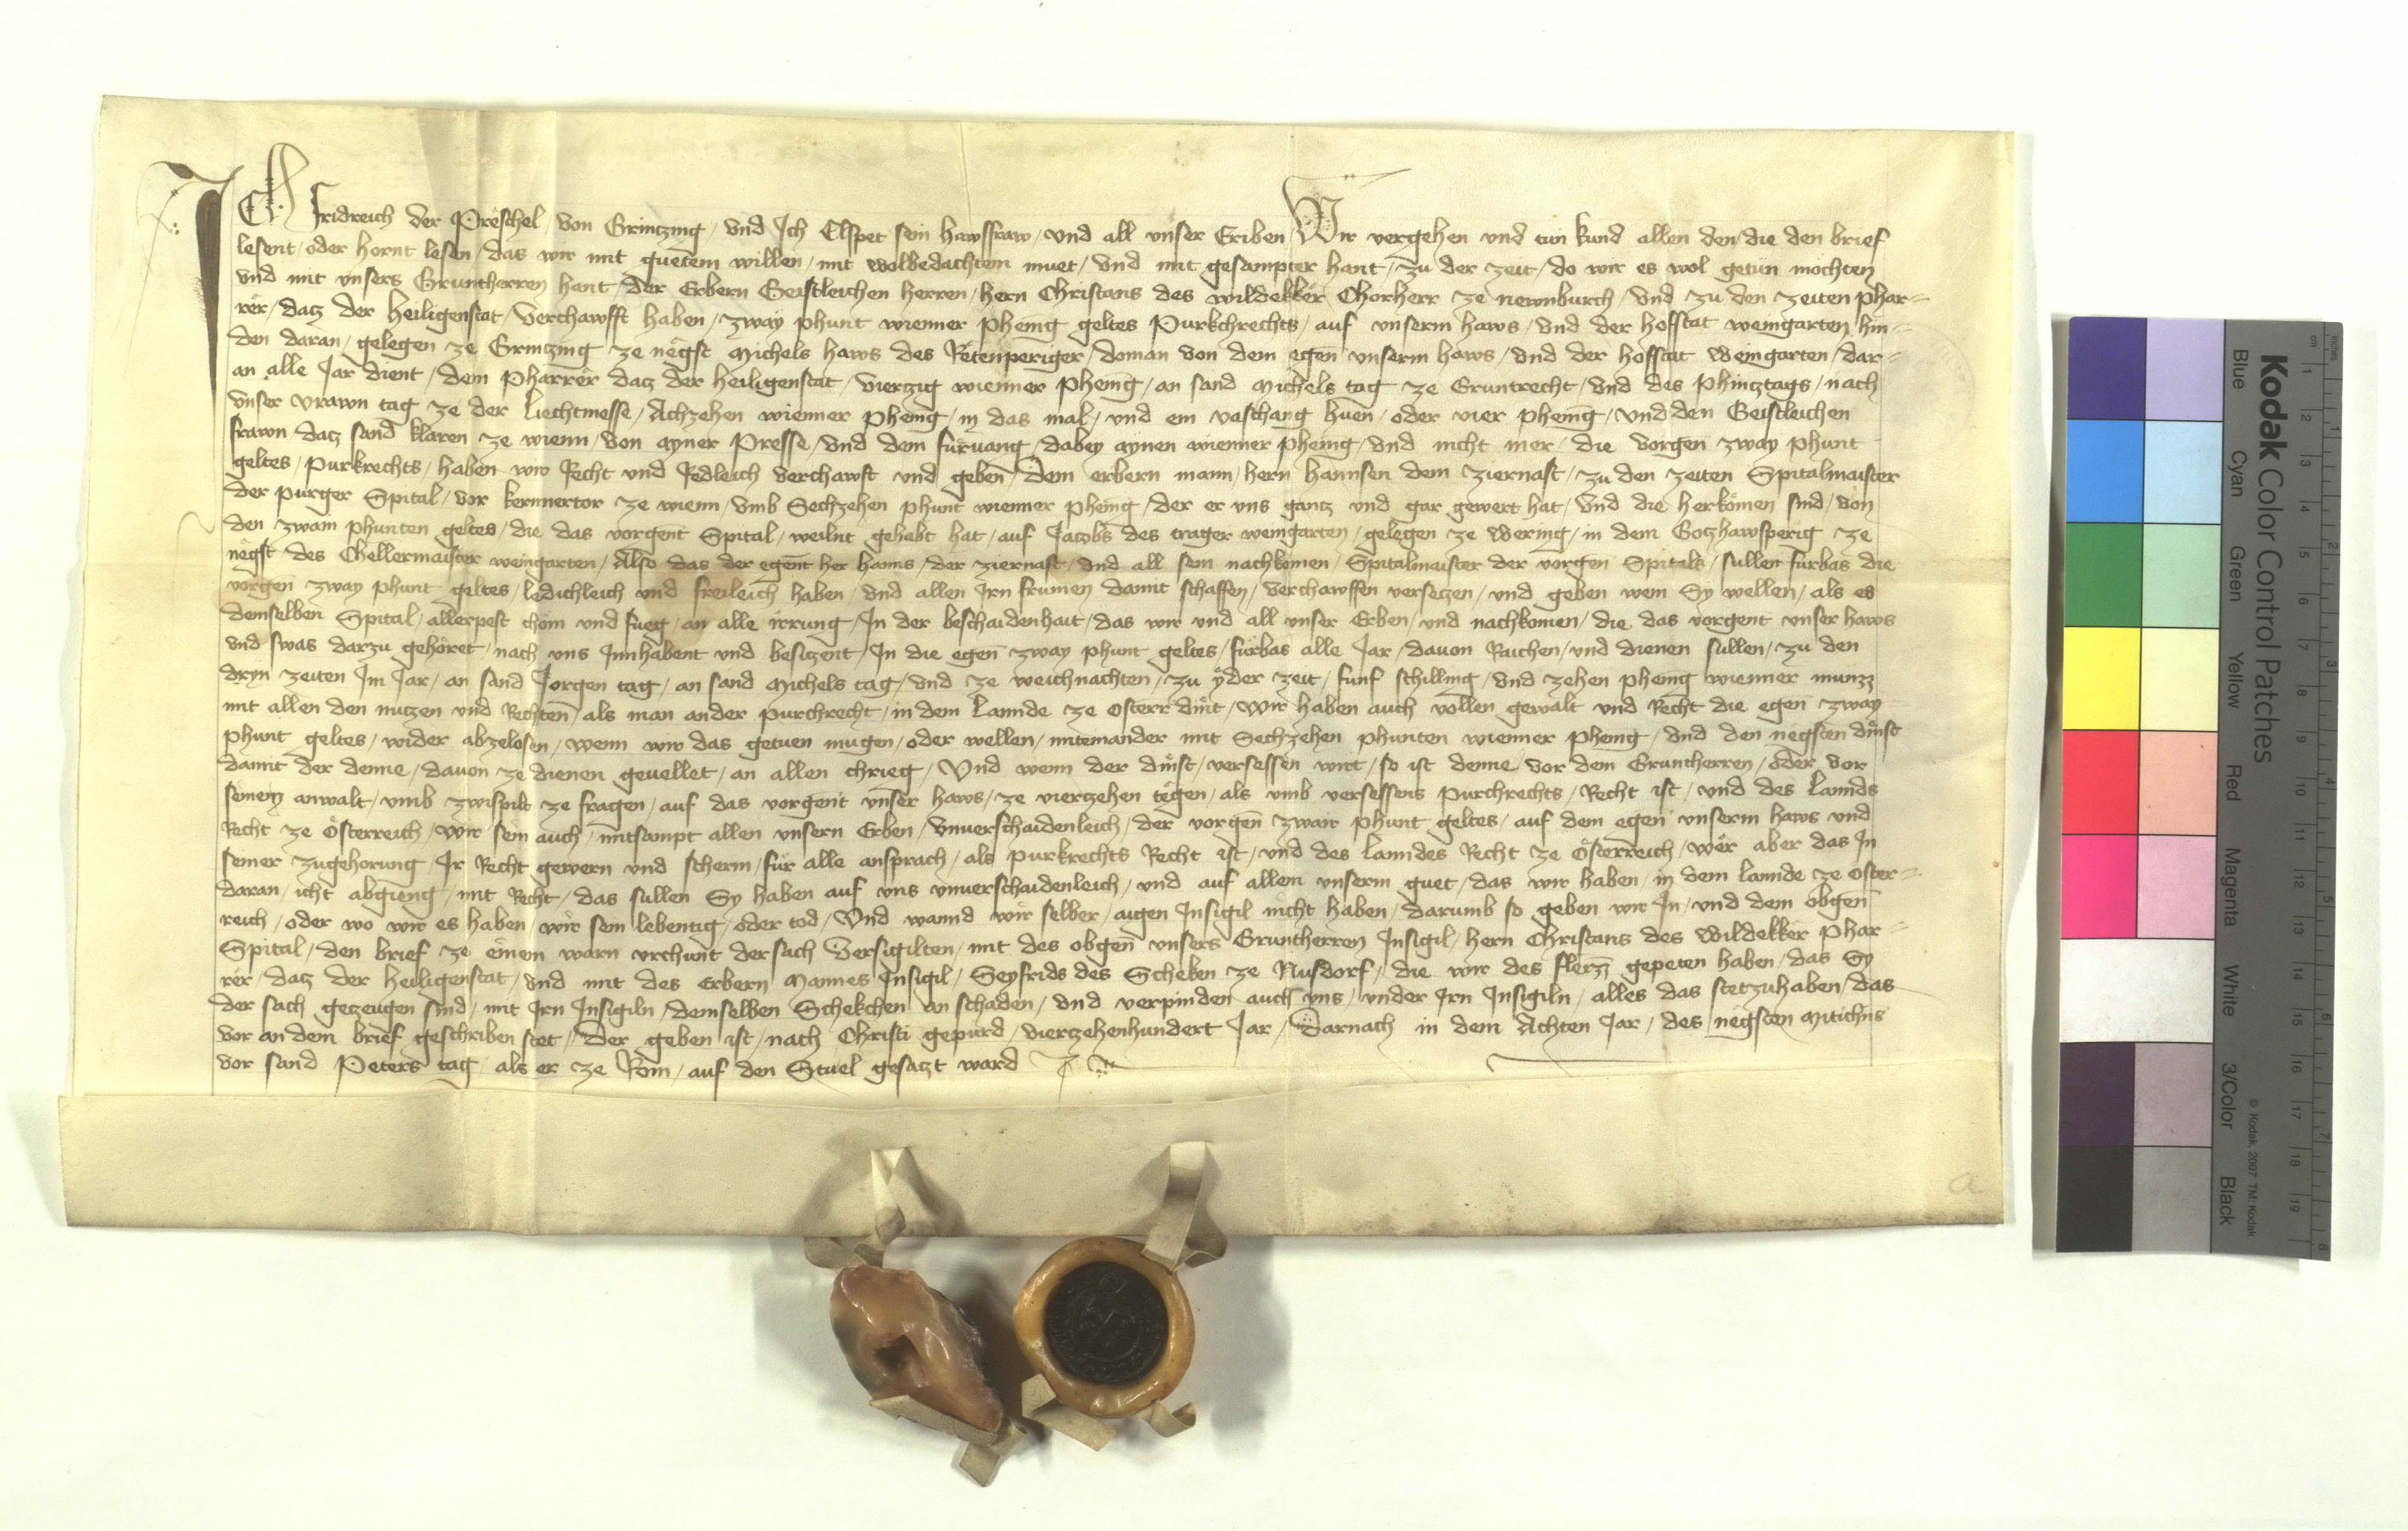 ICh Fridreich der Preschel / von Grintzing / vnd Ich Elspet sein hawsfraw / vnd all vnser Eriben Wir vergehen vnd tun kund allen den / die den brief
lesent / oder hornt lesen / das wir mit guetem willen / mit wolbedachtem muet / vnd mit gesampter hant / zu der zeit / do wir es wol getun mochten
vnd mit vnsers Gruntherren hant / der Erbern Geistleichen herren / hern Christans des wildekker Chorherr ze newnburch / vnd zu den zeiten phar=
rer / datz der heiligenstat / verchawfft haben / zway phunt wienner phenig geltes Purkchrechts / auf vnserm haws / vnd der hofstat weingarten hin=
den daran / gelegen ze Grintzing ze negst Michels haws des Retenperiger / doman von dem egen vnserm haws / vnd der hofstat weingarten / dar=
an alle Jar dient / dem Pharrer datz der heiligenstat / vierzig wienner phenig / an sand Michels tag ze Gruntrecht / vnd des Phincztags / nach
vnser vrawn tag ze der liechtmesse / Achzehen wienner phenig / in das mal / vnd ein vaschang huen / oder vier phenig / vnd den Geistleichen
frawn / datz sand klaren ze wienn / von ayner Presse / vnd dem furvang / dabey aynen wienner phenig / vnd nicht mer / die vorgen zway phunt
geltes / purkrechts / haben wir Recht vnd Redleich verchawft vnd geben / dem erbern mann / hern hannsen dem ziernast / zu den zeiten Spitalmaister
der purger Spital / vor kernnertor ze wienn / vmb Sechzehen phunt wienner phenig / der er vns gantz vnd gar gewert hat / vnd die herkomen sind / von
den zwain phunten geltes / die das vorgent Spital / weilnt gehabt hat / auf Jacobs des trager weingarten / gelegen ze wering / in dem Gotzhawsperig ze
negst des Chellermaister weingarten / Also das der egent her hanns / der ziernast / vnd all sein nachkomen / Spitalmaister der vorgen Spitals / sullen furbas die
vorgen zway phunt geltes / ledichleich vnd freileich haben / vnd allen irn frumen damit schaffen / verchawffen versetzen / vnd geben wem Sy wellen / als es
demselben Spital / allerpest chom vnd fueg / an alle irrung / In der beschaidenhait / das wir vnd all vnser Erben / vnd nachkomen / die das vorgent vnser haws
vnd swas darzu gehoret / nach vns Innhabent vnd besitzent / In die egen zway phunt geltes / furbas alle Jar / dauon Raichen / vnd dienen sullen / zu den
dryn zeiten Im Jar / an sand Jorgen tag / an sand Michels tag / vnd ze weichnachten / zu yder zeit / funf schilling / vnd zehen phenig wienner munzz
mit allen den nutzen vnd Rechten / als man ander purchrecht / in dem lannde ze osterr dint / wir haben auch vollen gewalt vnd Recht die egen zway
phunt geltes / wider abzelosen / wenn wir das getuen mugen / oder wellen / miteinander mit Sechzehen phunten wienner phenig / vnd den negsten dinst
damit der denne / dauon ze dienen geuellet / an allen chrieg / Vnd wenn der dinst / versessen wirt / so ist denne / vor dem Gruntherren / oder vor
seinem anwalt / vmb zwispilt ze fragen / auf das vorgent vnser haws / ze vierzehen tegen / als vmb versessens purchrechts / Recht ist / vnd des lannds
Recht ze Osterreich / wir sein auch / mitsampt allen vnsern Erben / vnuerschaidenleich / der vorgen zwair phunt geltes / auf dem egen vnserm haws vnd
seiner zugehorung / Ir Recht gewern vnd scherm / fur alle ansprach / als purkrechts Recht ist / vnd des lanndes Recht ze Osterreich / wer aber das In
daran / icht abgieng / mit Recht / das sullen Sy haben auf vns vnuerschaidenleich / vnd auf allem vnserm guet / das wir haben / in dem lannde ze Oster=
reich / oder wo wir es haben / wir sein lebentig / oder tod / Vnd wannd wir selber / aigen Insigil nicht haben / darumb so geben wir In / vnd dem obgen
Spital / den brief ze einem warn vrchunt der sach Versigilten / mit des obgen vnsers Gruntherren Insigil / hern Christans des Wildekker Phar=
rer / datz der heiligenstat / vnd mit des Erbern Mannes Insigil / Seyfrids des Scheken ze Nusdorf / die wir des flerzz gepeten haben / das Sy
der sach gezeugen sind / mit Irn Insigiln / demselben Schekchen an schaden / vnd verpinden auch vns / vnder Irn Insigiln / alles das stetzuhaben / das
vor an dem brief geschriben stet / Der geben ist / nach Christi gepurd / vierzehenhundert Jar / Darnach in dem Achten Jar / des negsten Mitichns
vor sand Peters tag / als er ze Rom / auf den Stuel gesatzt ward
a
Kodak Color Control Patches
Blue Cyan Green Yellow Red Magenta White 3/Color Black
© Kodak, 2007 TM: Kodak
cm 1 2 3 4 5 6 7 8 9 10 11 12 13 14 15 16 17 18 19
inches 1 2 3 4 5 6 7 8